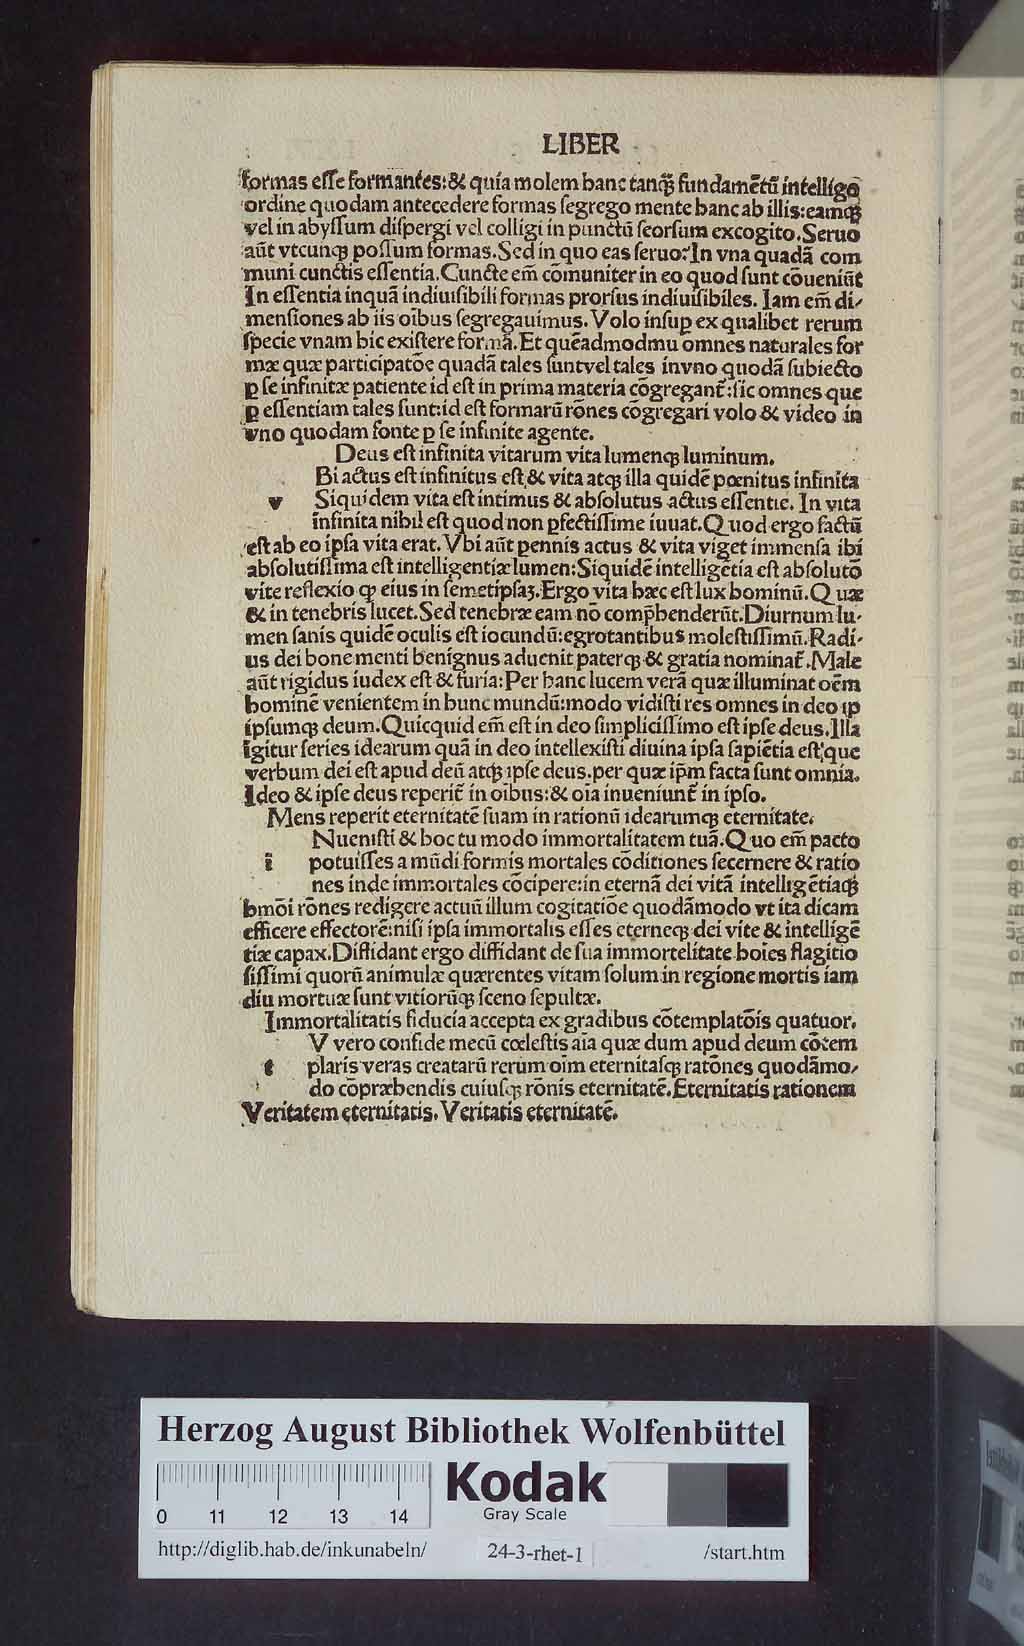 LIBER
formas eſſe formantes:& quia molem hanc tanqȝ fundamẽtũ intelligo
ordine quodam antecedere formas ſegrego mente hanc ab illis:eamqȝ
vel in abyſſum diſpergi vel colligi in punctũ ſeorſum excogito.Seruo
aũt vtcunqȝ poſſum formas.Sed in quo eas ſeruo?In vna quadã com
muni cunctis eſſentia.Cuncte em̃ cõmuniter in eo quod ſunt cõueniũt
In eſſentia inquã indiuiſibili formas prorſus indiuiſibiles. Iam em̃ di⸗
menſiones ab iis oĩbus ſegregauimus. Volo inſuꝑ ex qualibet rerum
ſpecie vnam hic exiſtere formã. Et quẽadmodmu omnes naturales for
mæ quæ participatõe quadã tales ſunt vel tales in vno quodã ſubiecto
ꝑ ſe infinitæ patiente id eſt in prima materia cõgregant̃:ſic omnes que
ꝑ eſſentiam tales ſunt:id eſt formarũ rõnes cõgregari volo & video in
vno quodam fonte ꝑ ſe infinite agente.
Deus eſt infinita vitarum vita lumenqȝ luminum.
Bi actus eſt infinitus eſt,& vita atqȝ illa quidẽ pœnitus infinita
v Siquidem vita eſt intimus & abſolutus actus eſſentie. In vita
infinita nihil eſt quod non ꝑfectiſſime iuuat. Quod ergo factũ
eſt ab eo ipſa vita erat. Vbi aũt ꝑennis actus & vita viget immenſa ibi
abſolutiſſima eſt intelligentiæ lumen:Siquidẽ intelligẽtia eſt abſolutõ
vite reflexio qȝ eius in ſemetipſaȝ.Ergo vita hæc eſt lux hominũ.Quæ
& in tenebris lucet.Sed tenebræ eam nõ comp̃henderũt.Diurnum lu⸗
men ſanis quidẽ oculis eſt iocundũ:egrotantibus moleſtiſſimũ.Radi⸗
us dei bone menti benignus aduenit paterqȝ & gratia nominat̃.Male
aũt rigidus iudex eſt & furia:Per hanc lucem verã quæ illuminat oẽm
hominẽ venientem in hunc mundũ:modo vidiſti res omnes in deo ip
ipſumqȝ deum.Quicquid em̃ eſt in deo ſimpliciſſimo eſt ipſe deus.Illa
igitur ſeries idearum quã in deo intellexiſti diuina ipſa ſapiẽtia eſt,que
verbum dei eſt apud deũ atqȝ ipſe deus.per quæ ip̃m facta ſunt omnia.
Ideo & ipſe deus reperit̃ in oĩbus:& oĩa inueniunt̃ in ipſo.
Mens reperit eternitatẽ ſuam in rationũ idearumqȝ eternitate.
Nueniſti & hoc tu modo immortalitatem tuã.Quo em̃ pacto
i potuiſſes a mũdi formis mortales cõditiones ſecernere & ratio
nes inde immortales cõcipere:in eternã dei vitã intelligẽtiaqȝ
hm̃õi rõnes redigere actuũ illum cogitatiõe quodãmodo vt ita dicam
efficere effectorẽ:niſi ipſa immortalis eſſes eterneqȝ dei vite & intelligẽ
tiæ capax.Diffidant ergo diffidant de ſua immortelitate hoies flagitio
ſiſſimi quorũ animulæ quærentes vitam ſolum in regione mortis iam
diu mortuæ ſunt vitiorũqȝ ſceno ſepultæ.
Immortalitatis fiducia accepta ex gradibus cõtemplatõis quatuor.
V vero confide mecũ cœleſtis aĩa quæ dum apud deum cõtem
t plaris veras creatarũ rerum oĩm eternitaſqȝ ratõnes quodãmo⸗
do cõpræhendis cuiuſqȝ rõnis eternitatẽ.Eternitatis rationem
Veritatem eternitatis. Veritatis eternitatẽ.
Herzog August Bibliothek Wolfenbüttel
Kodak
Gray Scale
0 11 12 13 14
http://diglib.hab.de/inkunabeln/ 24-3-rhet-1 /start.htm